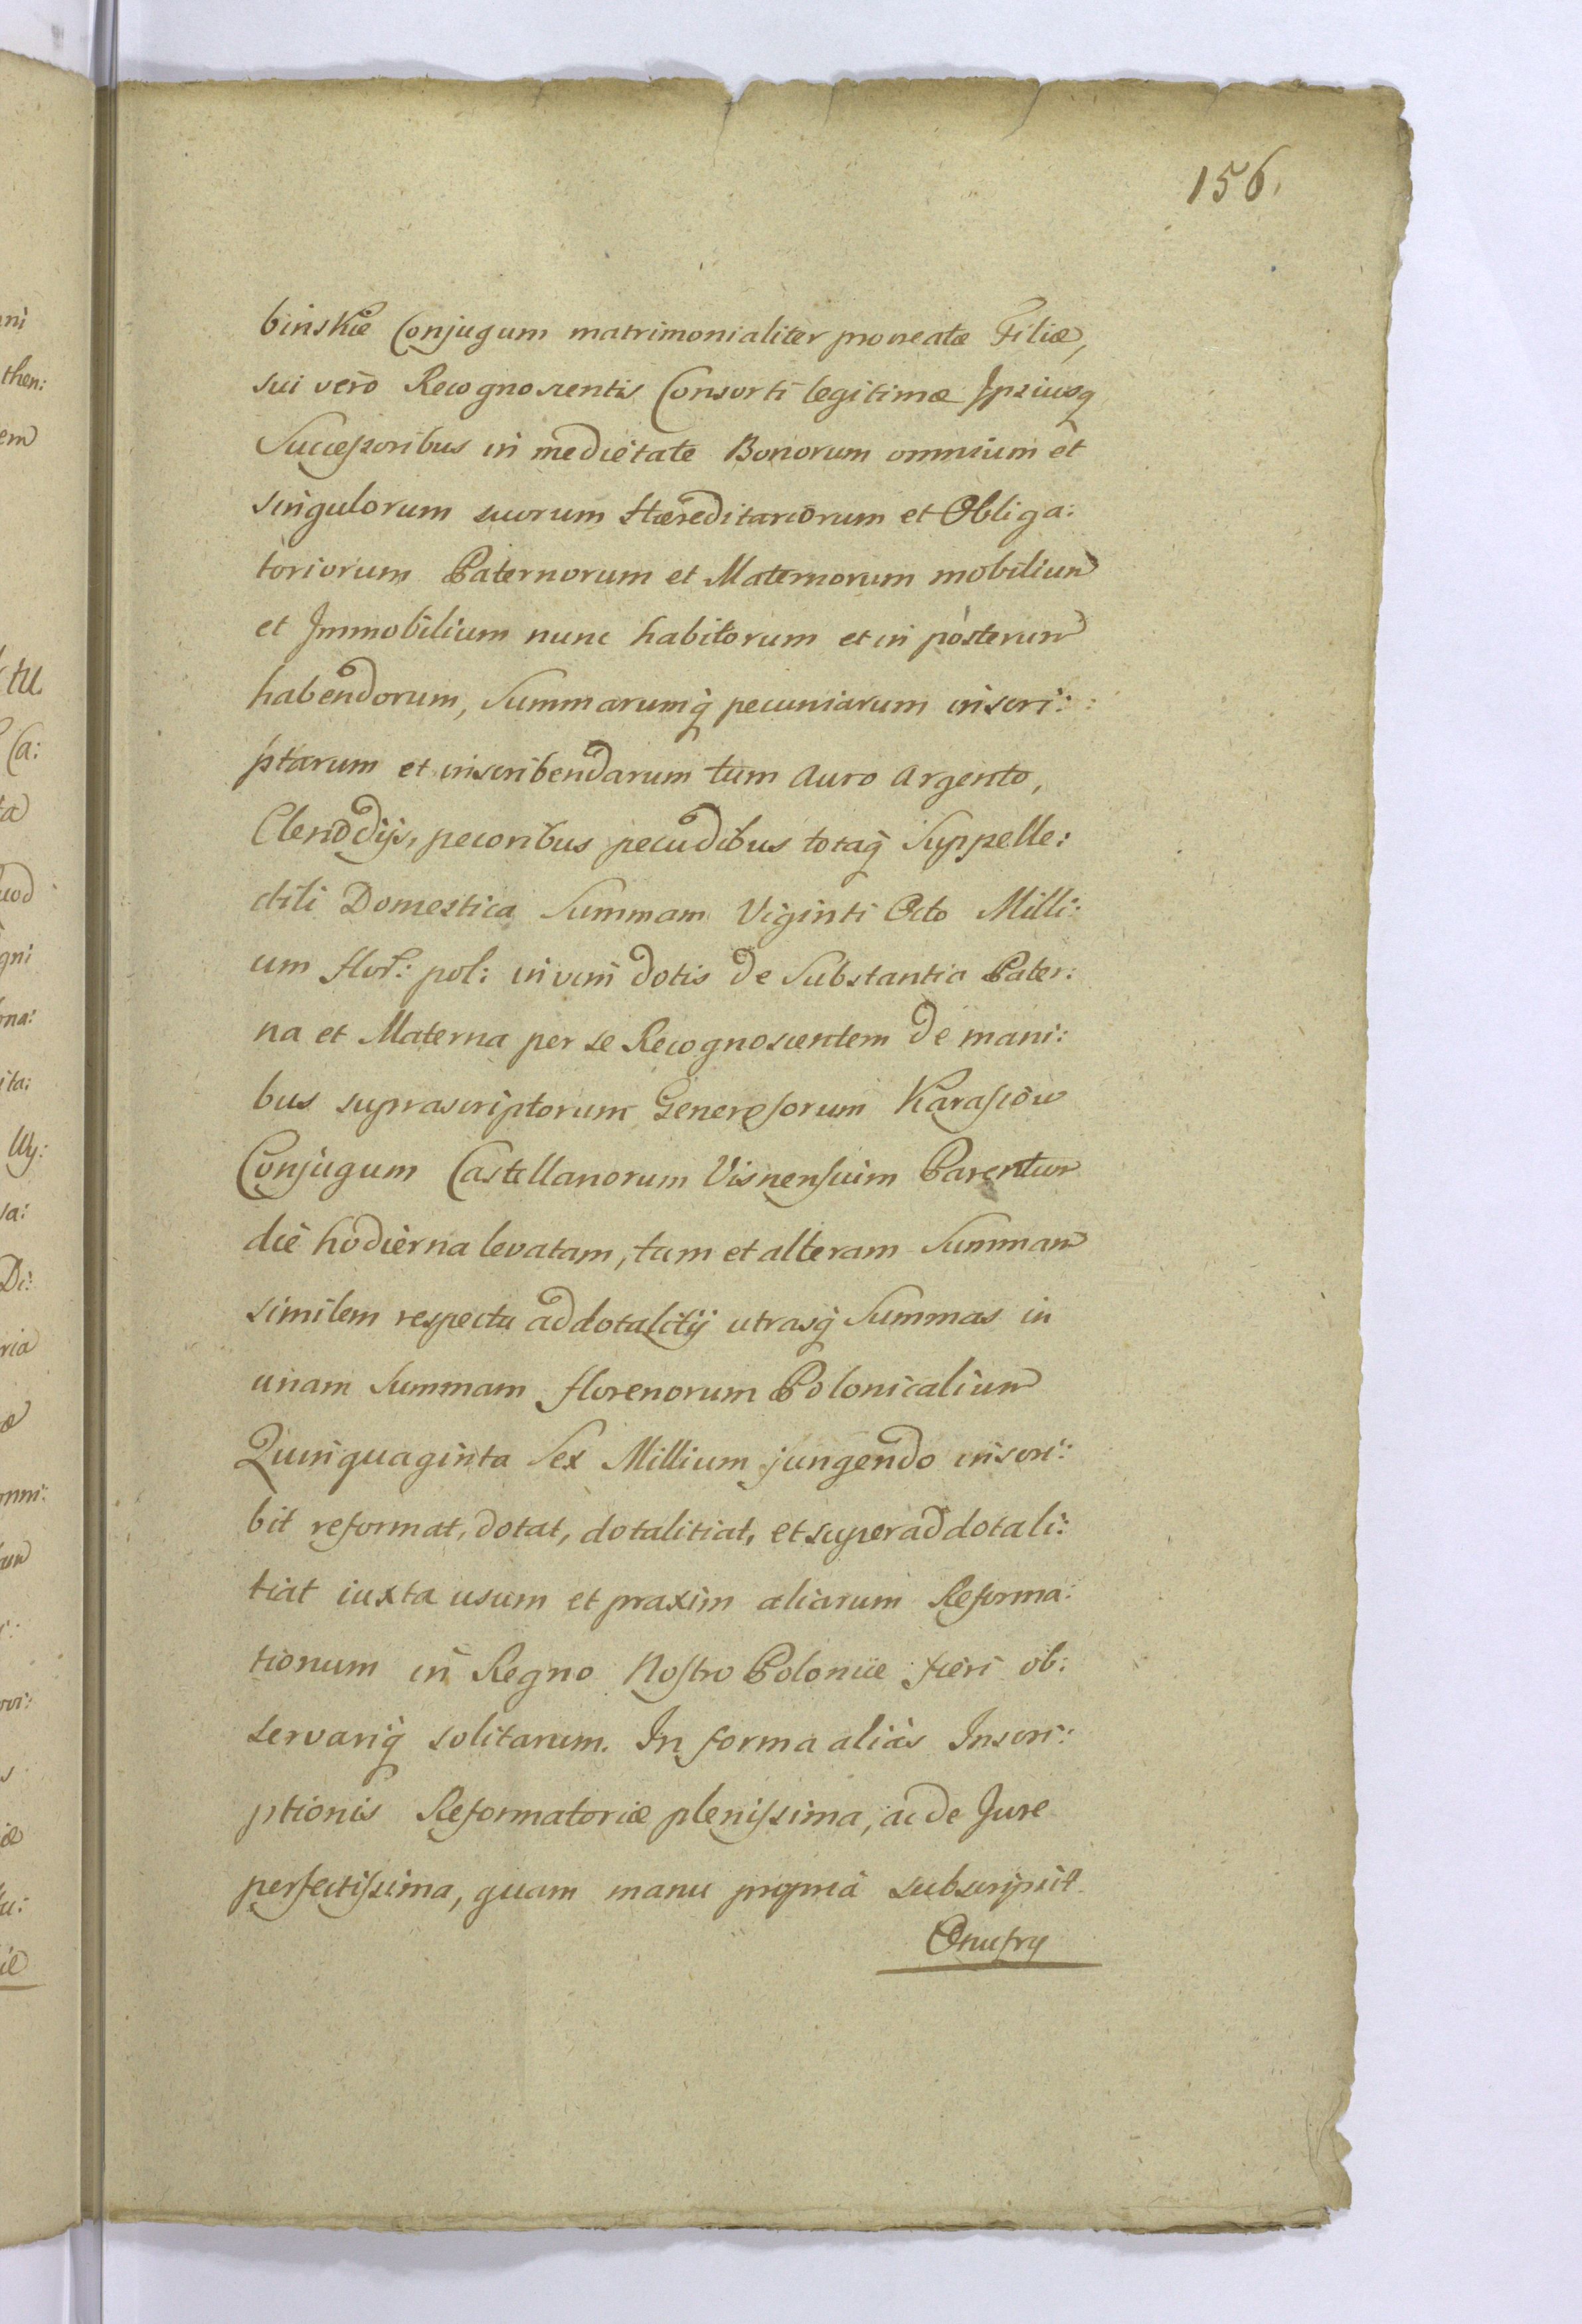 156.
binskie Conjugum matrimonialiter procreatæ Filiæ,
sui vero Recognoscentis Consorti legitimæ Ipsiusq
Successoribus in medietate Bonorum omnium et
singulorum suorum Hæreditariorum et Obliga:
toriorum Paternorum et Maternorum mobilium
et Immobilium nunc habitorum et in posterum
habendorum, Summarumq pecuniarum inscri:
ptarum et inscribendarum tum Auro Argento,
Clenodijs, pecoribus pecudibus totaq Suppelle:
ctili Domestica Summam Viginti Octo Milli:
um flor: pol: in vim dotis de Substantia Pater:
na et Materna per se Recognoscentem de mani:
bus suprascriptorum Generosorum Karasiow
Conjugum Castellanorum Visnensium Parentum
die hodierna levatam, tum et alteram Summam
similem respectu addotalitij utrasq Summas in
unam Summam florenorum Polonicalium
Quinquaginta Sex Millium jungendo inscri:
bit reformat, dotat, dotalitiat, et superaddotali:
tiat iuxta usum et praxim aliarum Reforma:
tionum in Regno Nostro Poloniæ fieri ob:
servariq solitarum. In forma aliàs Inscri:
ptionis Reformatoriæ plenissima, ac de Jure
perfectissima, quam manu propria subscripsit
Onufry
ni
then:
em
tu
Ca:
ta
uod
gni
ona:
ita:
Wy:
sa:
Di:
ria
æ